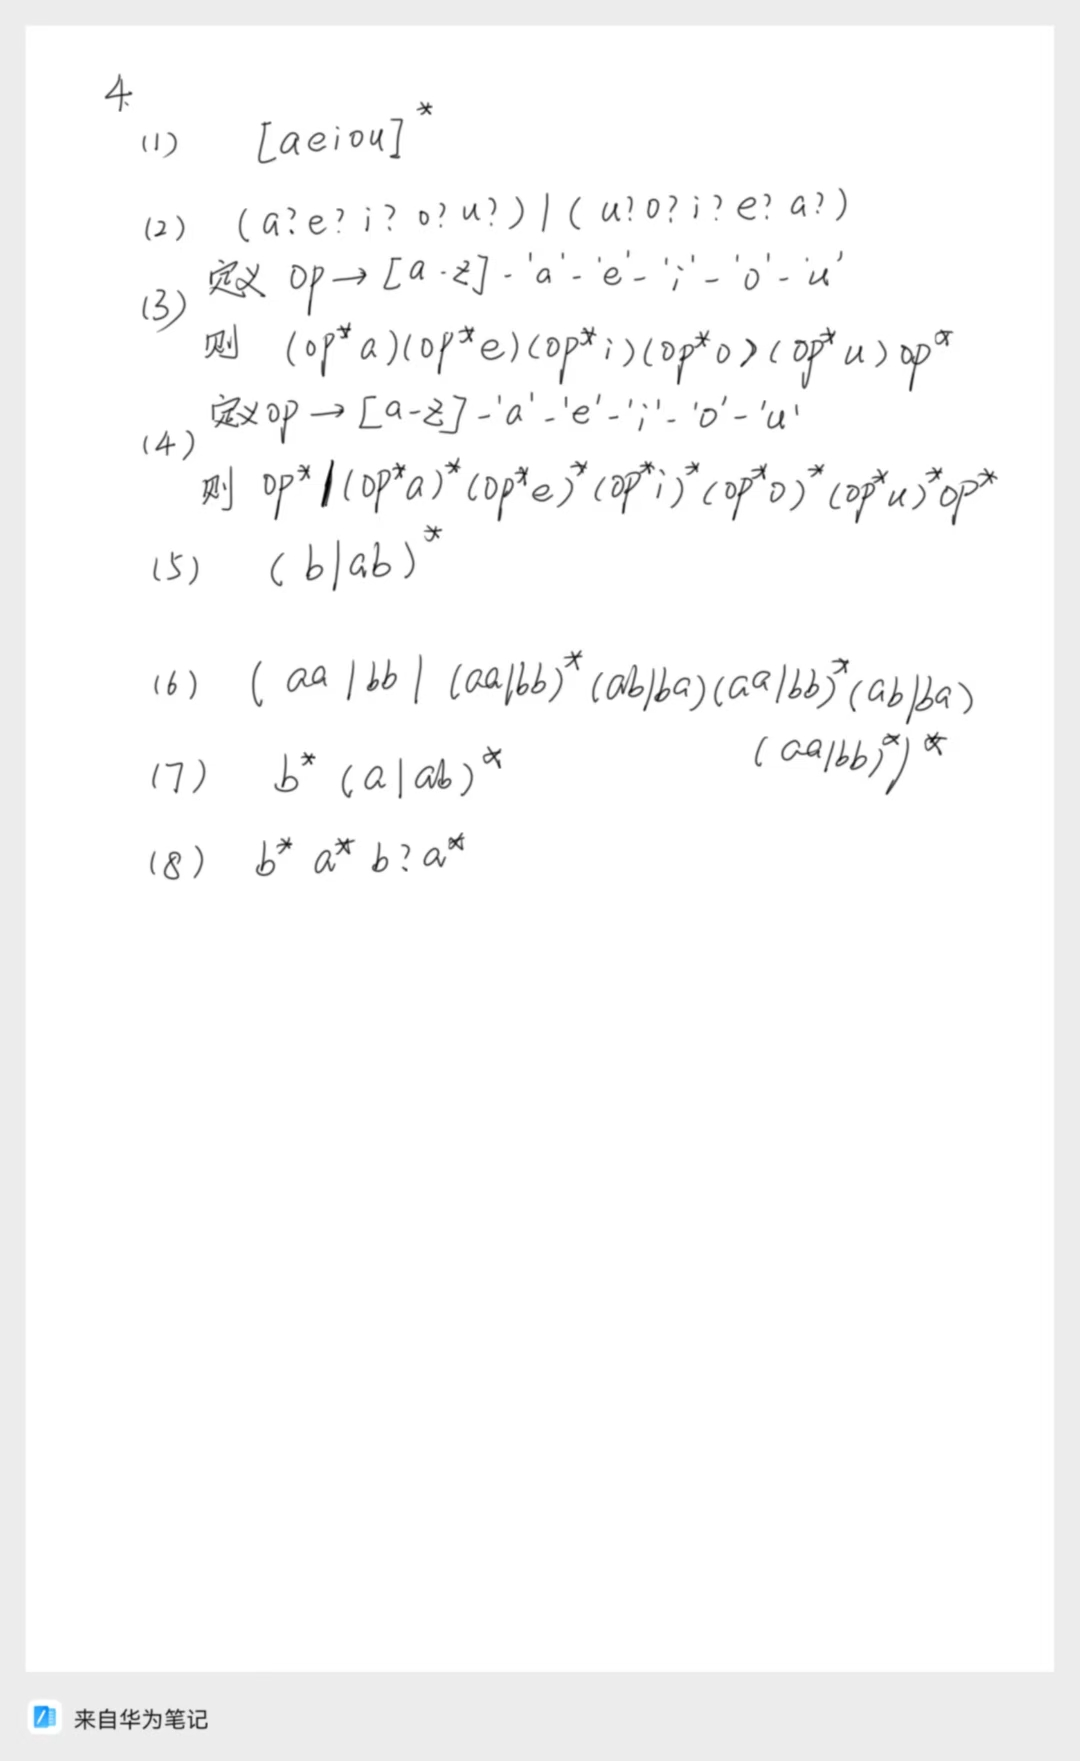 4.
(1) [aeiou]*
(2) (a?e?i?o?u?)|(u?o?i?e?a?)
(3) 定义 op→[a-z]-'a'-'e'-'i'-'o'-'u'
则 (op*a)(op*e)(op*i)(op*o)(op*u)op*
(4) 定义op→[a-z]-'a'-'e'-'i'-'o'-'u'
则 op*|(op*a)*(op*e)*(op*i)*(op*o)*(op*u)*op*
(5) (b|ab)*
(6) (aa|bb|(aa|bb)*(ab|ba)(aa|bb)*(ab|ba)
(aa|bb)*)*
(7) b*(a|ab)*
(8) b*a*b?a*
来自华为笔记